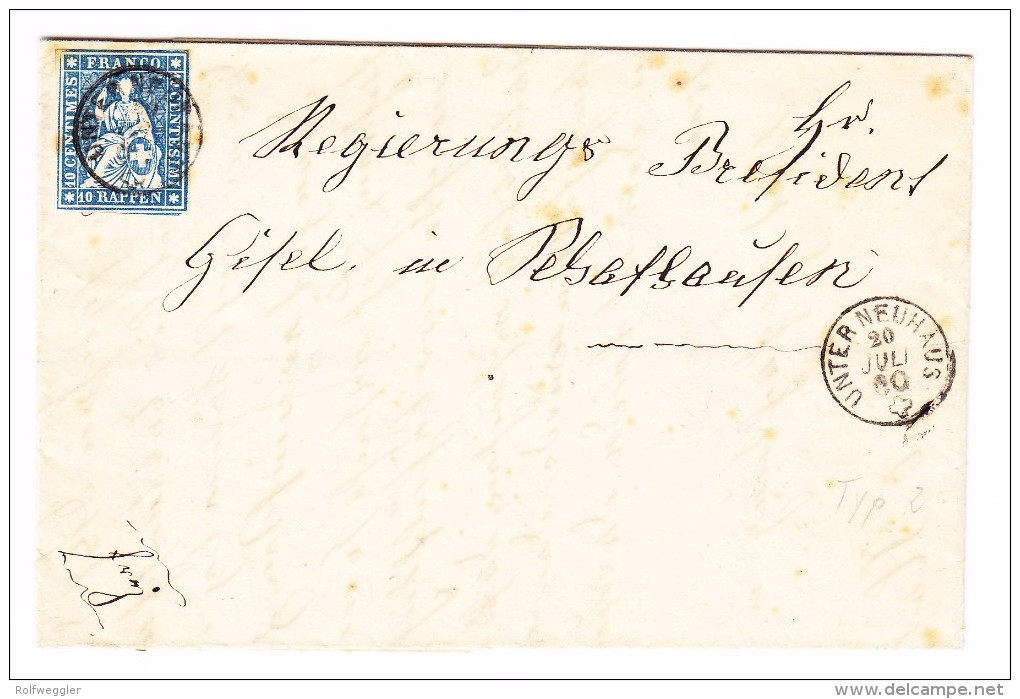 FRANCO
10 CENTIMES
CENTESIMI
10 RAPPEN
Hr.
Regierungs President
Gisel. in Schafhausen
UNTER NEUHAUS
20
JULI
60
Typ 2
Rolfweggler
delcampe.net